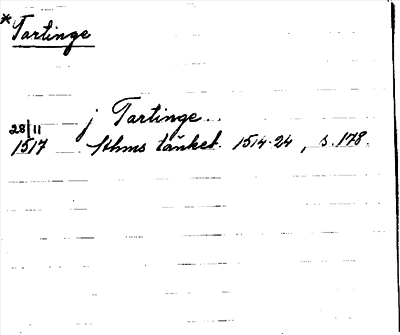 *Tartinge
28/11 j Tartinge..
1517 Sthms tänkeb. 1514-24, s. 178.